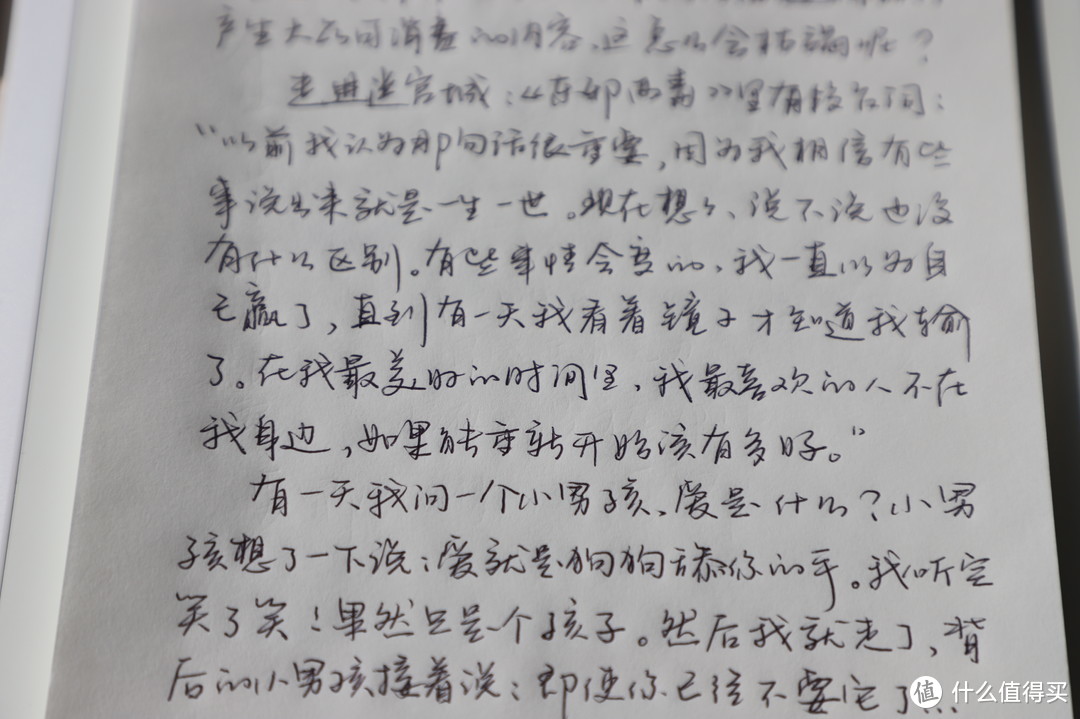 产生大的可消费的内容，这怎么会枯竭呢？
走进迷宫城：《东邪西毒》里有段台词：
“以前我认为那句话很重要，因为我相信有些
事说出来就是一生一世。现在想想、说不说也没
有什么区别。有些事情会变的，我一直以为自
己赢了，直到有一天我看着镜子才知道我输
了。在我最美好的时间里，我最喜欢的人不在
我身边，如果能重新开始该有多好。”
有一天我问一个小男孩，爱是什么？小男
孩想了一下说：爱就是狗狗舔你的手。我听完
笑了笑！果然只是个孩子。然后我就走了，背
后的小男孩接着说：即使你已经不要它了...
值 什么值得买